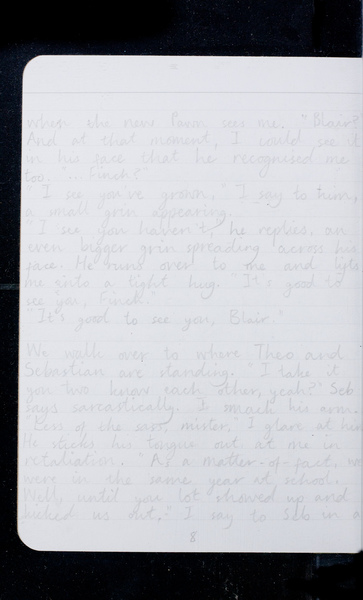 when the new Pawn sees me. "Blair?"
And at that moment, I could see it
in his face that he recognised me
too. "... Finch?"
"I see you've grown," I say to him,
a small grin appearing.
"I see you haven't," he replies, an
even bigger grin spreading across his
face. He runs over to me and
me into a tight hug. "It's good to
see you, Finch."
"It's good to see you, Blair."
We walk over to where Theo and
Sebastian are standing. "I take it
you two know each other, yeah?" Seb
says sarcastically. I smack his arm.
"Less of the sass, mister." I glare at him
He sticks his tongue out at me in
retaliation. "As a matter-of-fact, we
were in the same year at school.
Well, until you lot showed up and
kicked us out." I say to Seb in a
8